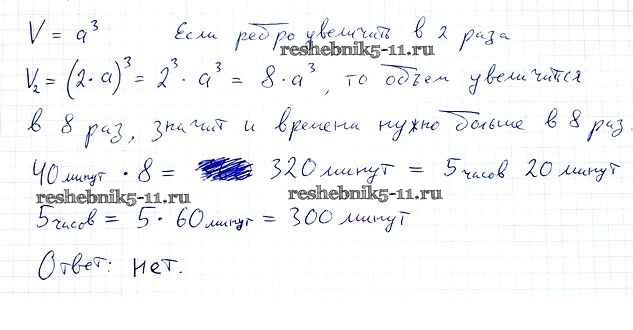 V = a³ Если ребро увеличить в 2 раза
reshebnik5-11.ru
V₂ = (2·a)³ = 2³ · a³ = 8·a³, то объем увеличится
в 8 раз, значит и времена нужно больше в 8 раз.
40 минут · 8 = 320 минут = 5 часов 20 минут
reshebnik5-11.ru reshebnik5-11.ru
5 часов = 5 · 60 минут = 300 минут
Ответ: нет.